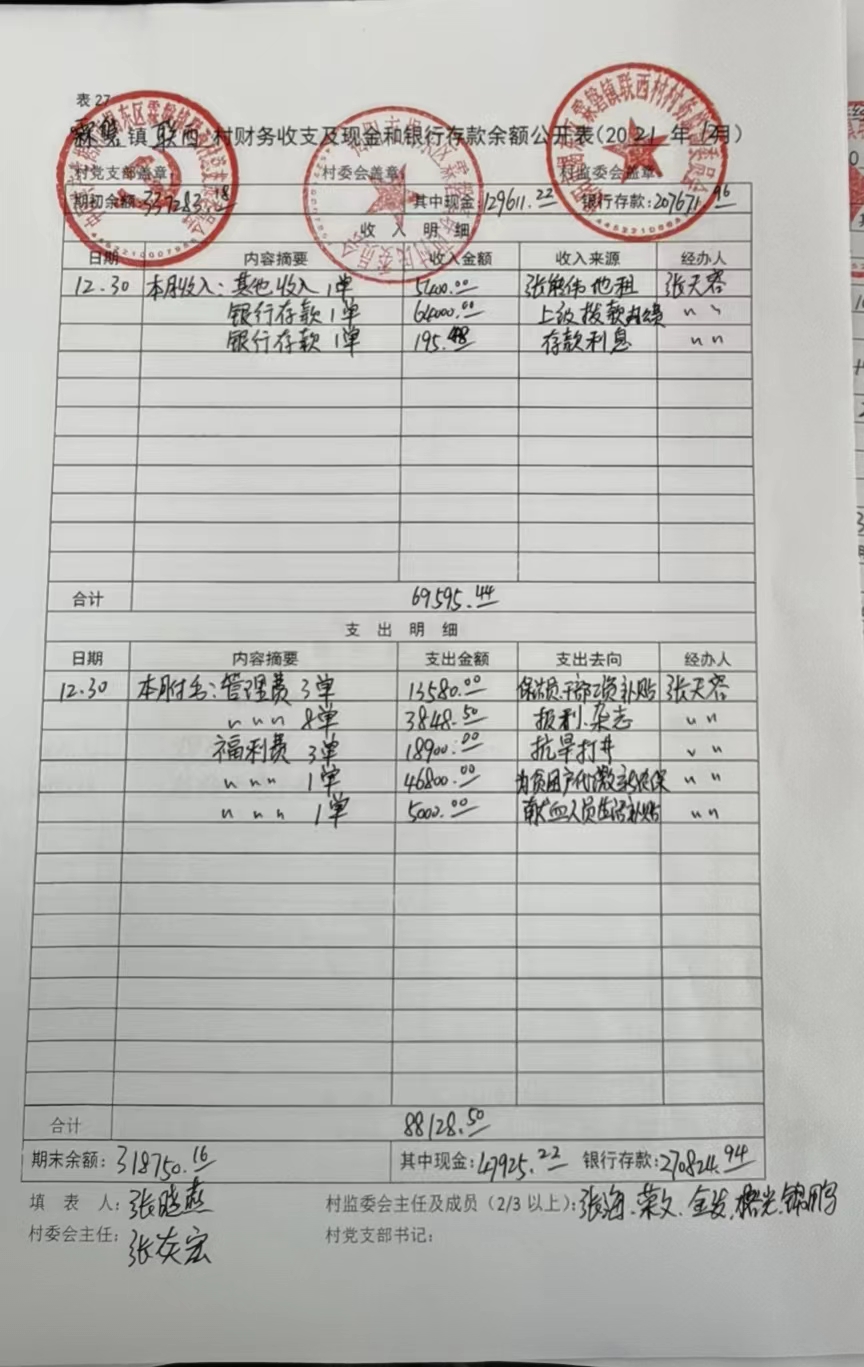 表27
霖磐镇联西村财务收支及现金和银行存款余额公开表(2021年12月)
村党支部盖章: 村委会盖章: 村监委会盖章:
期初余额:337283.18 其中现金:129611.22 银行存款:207671.96
收 入 明 细
日期 内容摘要 收入金额 收入来源 经办人
12.30 本月收入:其他收入1单 5400.00 张 伟地租 张天容
银行存款1单 64000.00 上级拨款 〃 〃
银行存款1单 195.44 存款利息 〃 〃
合计 69595.44
支 出 明 细
日期 内容摘要 支出金额 支出去向 经办人
12.30 本月付出:管理费 3单 13580.00 保洁员.干部工资补贴 张天容
〃 〃 〃 8单 3848.50 报刊.杂志 〃 〃
福利费 3单 18900.00 抗旱打井 〃 〃
〃 〃 〃 1单 46800.00 为贫困户代缴 〃 〃
〃 〃 〃 1单 5000.00 献血人员生活补贴 〃 〃
合计 88128.50
期末余额:318750.16 其中现金:47925.22 银行存款:270824.94
填 表 人:张晓燕 村监委会主任及成员(2/3以上):张海.荣文.金发.楷光.锦鹏
村委会主任:张宏 村党支部书记: